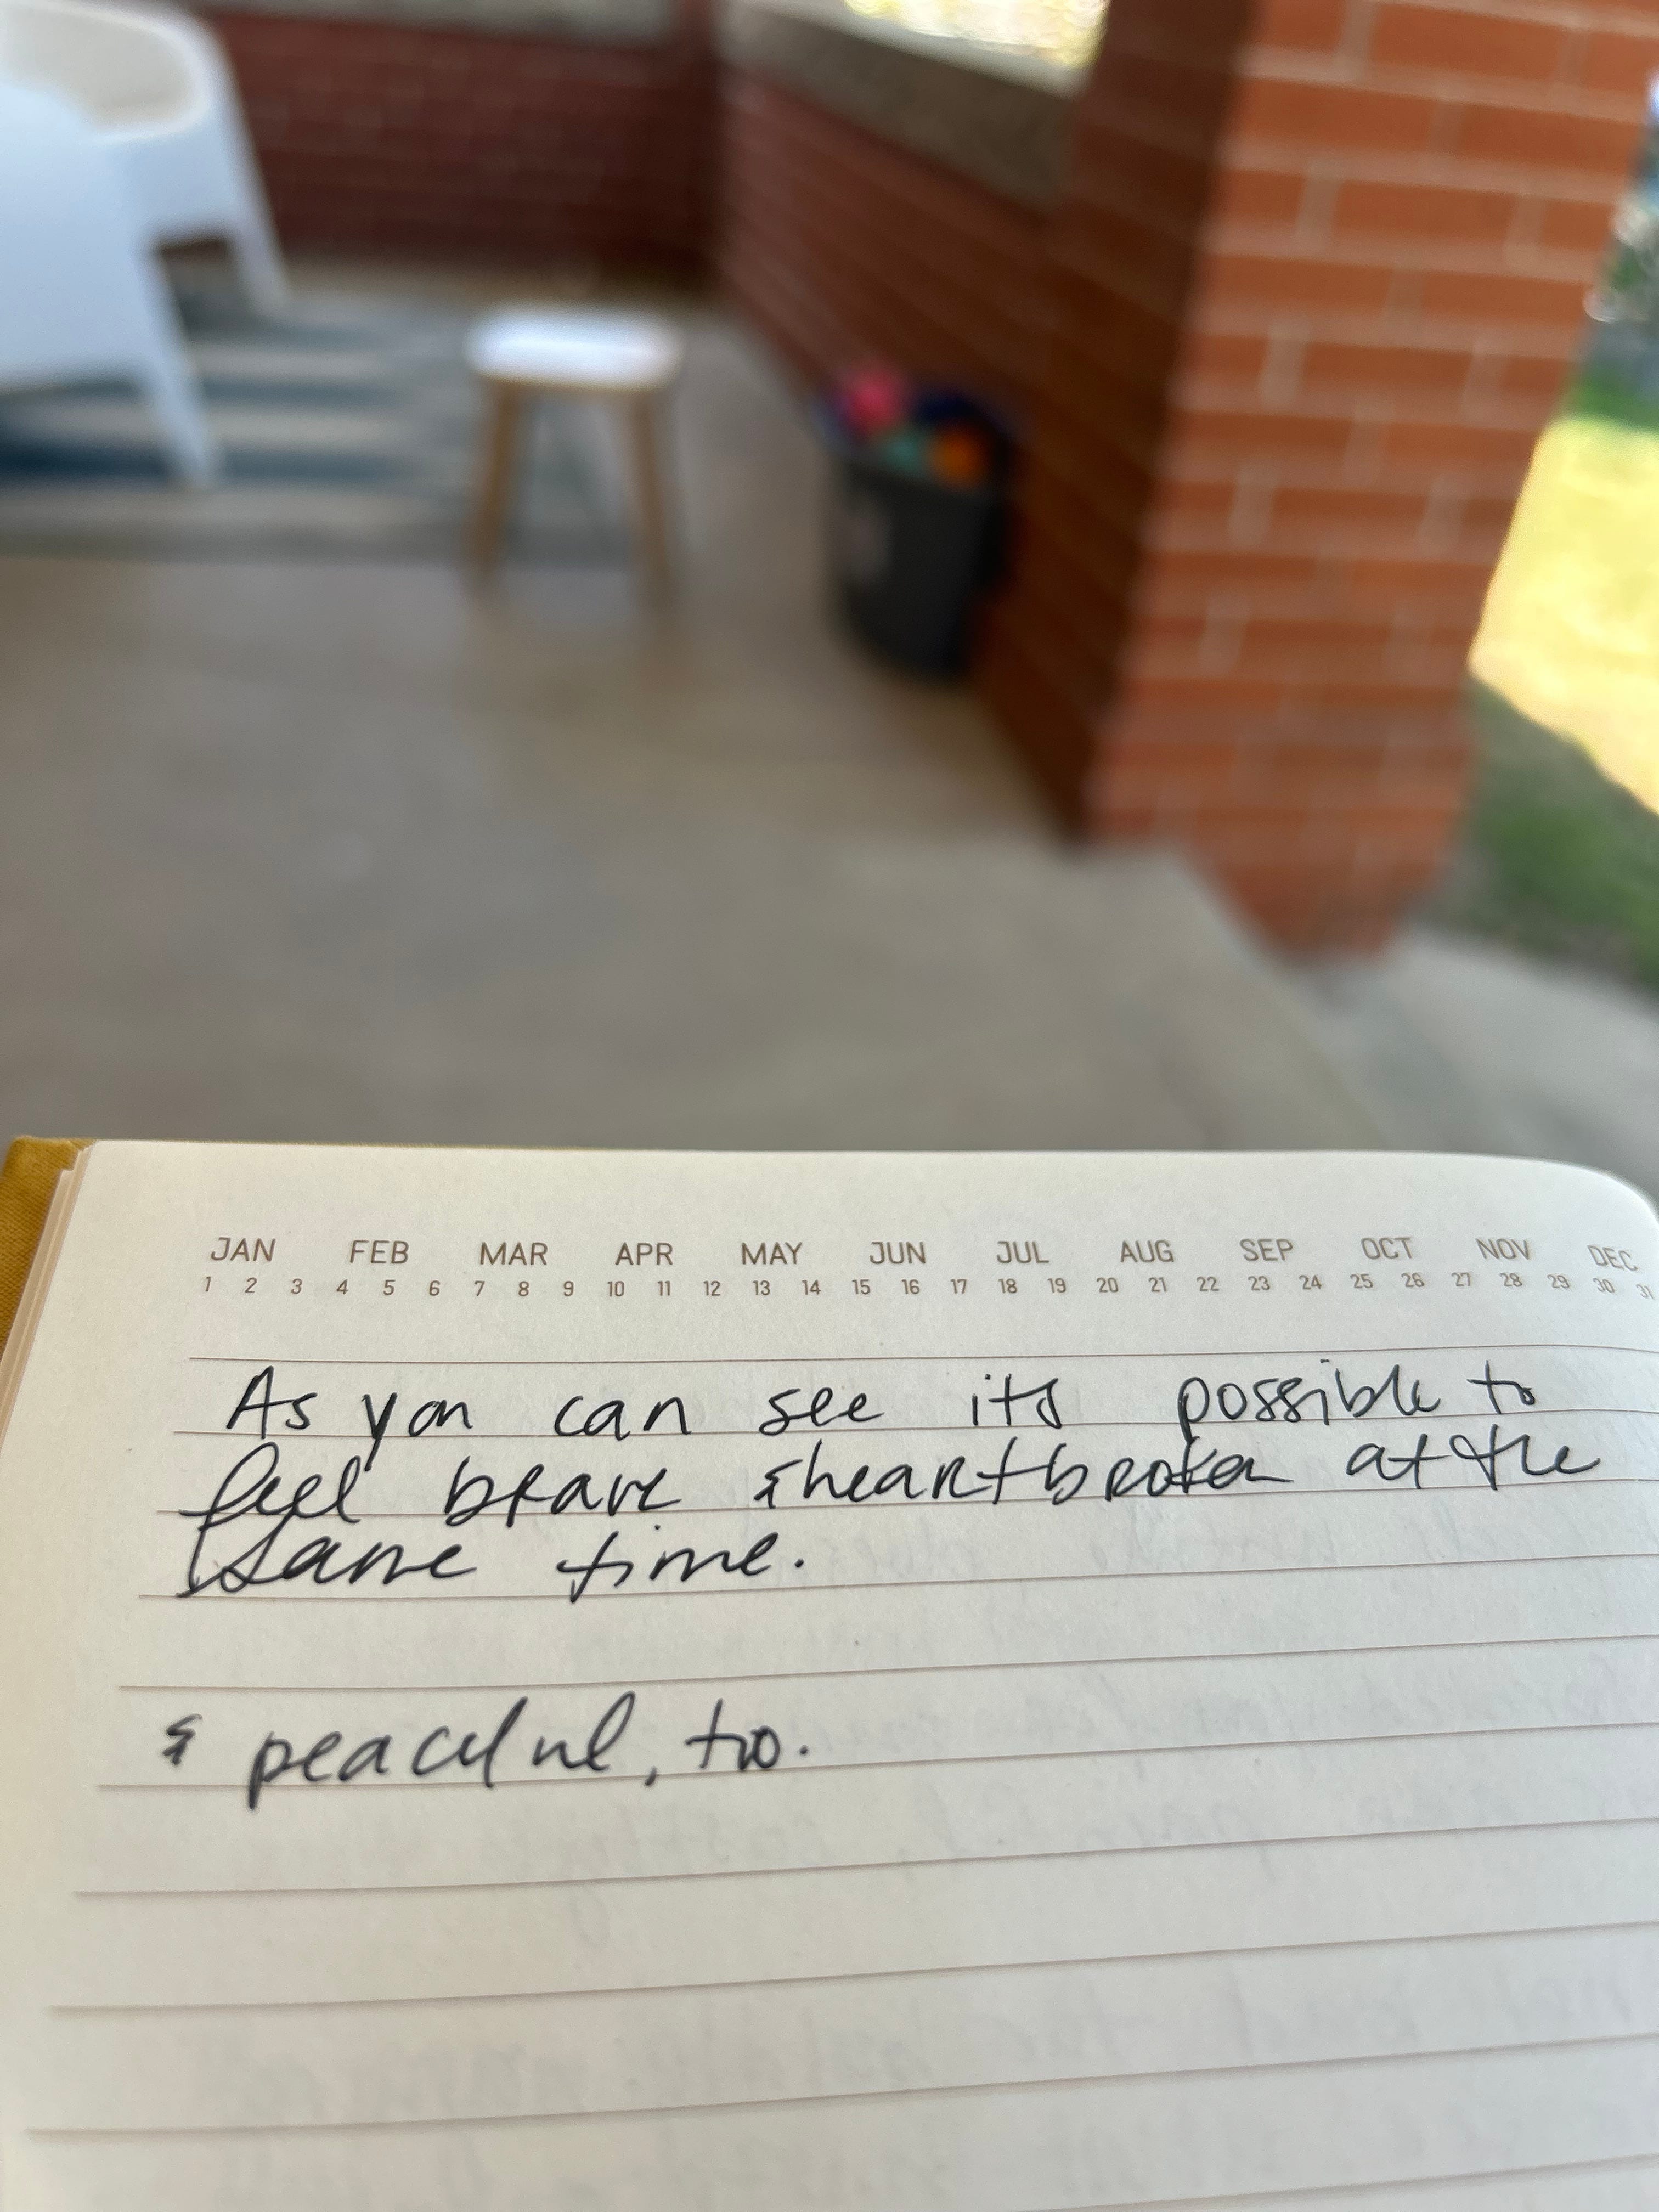 JAN FEB MAR APR MAY JUN JUL AUG SEP OCT NOV DEC
1 2 3 4 5 6 7 8 9 10 11 12 13 14 15 16 17 18 19 20 21 22 23 24 25 26 27 28 29 30 31
As you can see its possible to
feel brave & heartbroken at the
same time.
& peaceful, too.